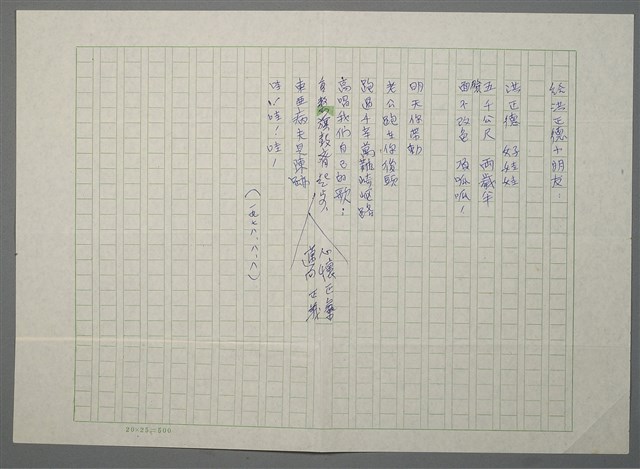 給洪正德小朋友！
洪正德　好娃娃
五千公尺　兩歲半
面不改色　頂呱呱！
明天你帶動
老公跑在你後頭
跑過千辛萬難崎嶇路
高唱我們自己的歌：
自
東亞病夫是陳
哇！哇！哇！
（一九七八．八．八）
心懷正
邁向正義
20×25=500